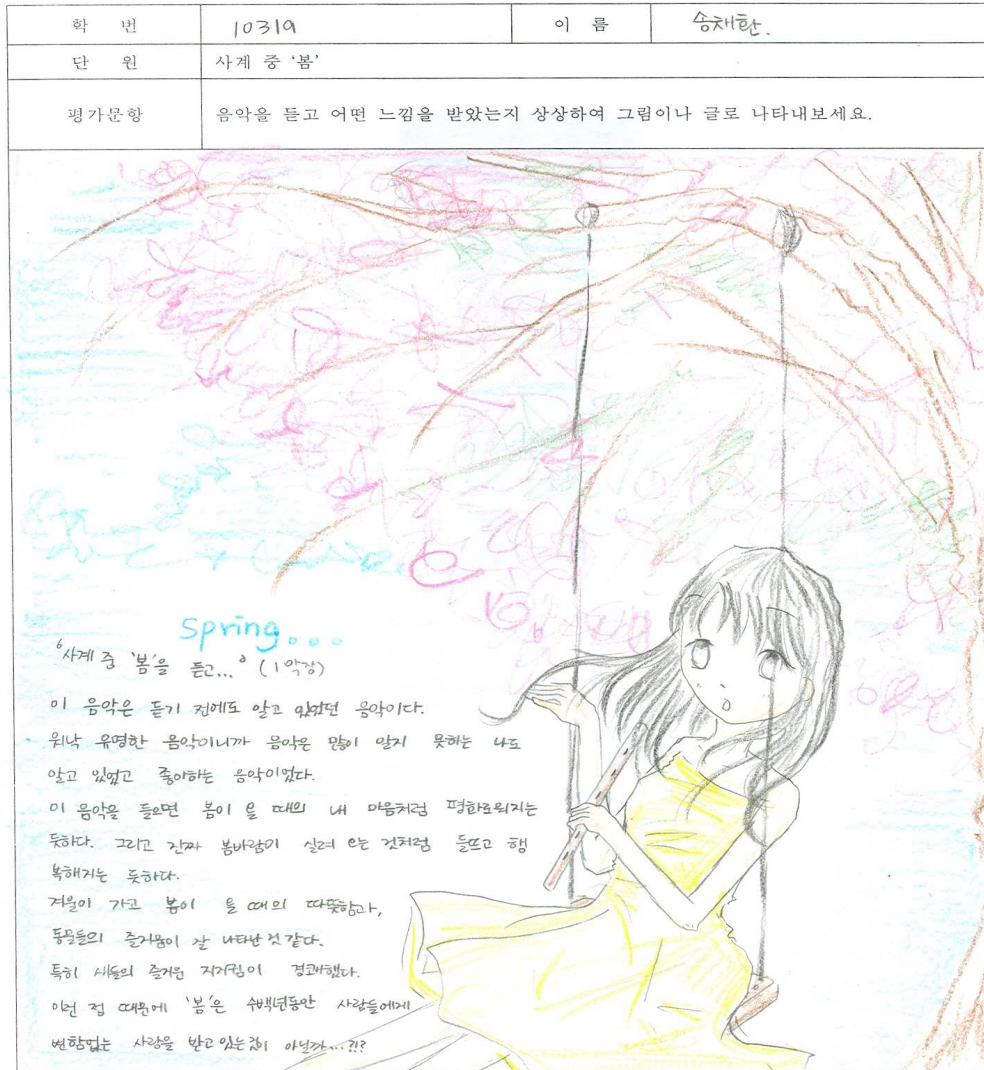 학 번 10319 이 름 송채환.
단 원 사계 중 '봄'
평가문항 음악을 듣고 어떤 느낌을 받았는지 상상하여 그림이나 글로 나타내보세요.
spring...
'사계 중 '봄'을 듣고...' (1악장)
이 음악은 듣기 전에도 알고 있었던 음악이다.
워낙 유명한 음악이니까 음악은 많이 알지 못하는 나도
알고 있었고 좋아하는 음악이었다.
이 음악을 들으면 봄이 올 때의 내 마음처럼 평화로워지는
듯하다. 그리고 진짜 봄바람이 실려 오는 것처럼 들뜨고 행
복해지는 듯하다.
겨울이 가고 봄이 올 때의 따뜻함과,
동물들의 즐거움이 잘 나타난 것 같다.
특히 새들의 즐거운 지저귐이 경쾌했다.
이런 점 때문에 '봄'은 수백년동안 사람들에게
변함없는 사랑을 받고 있는것이 아닐까...?!?